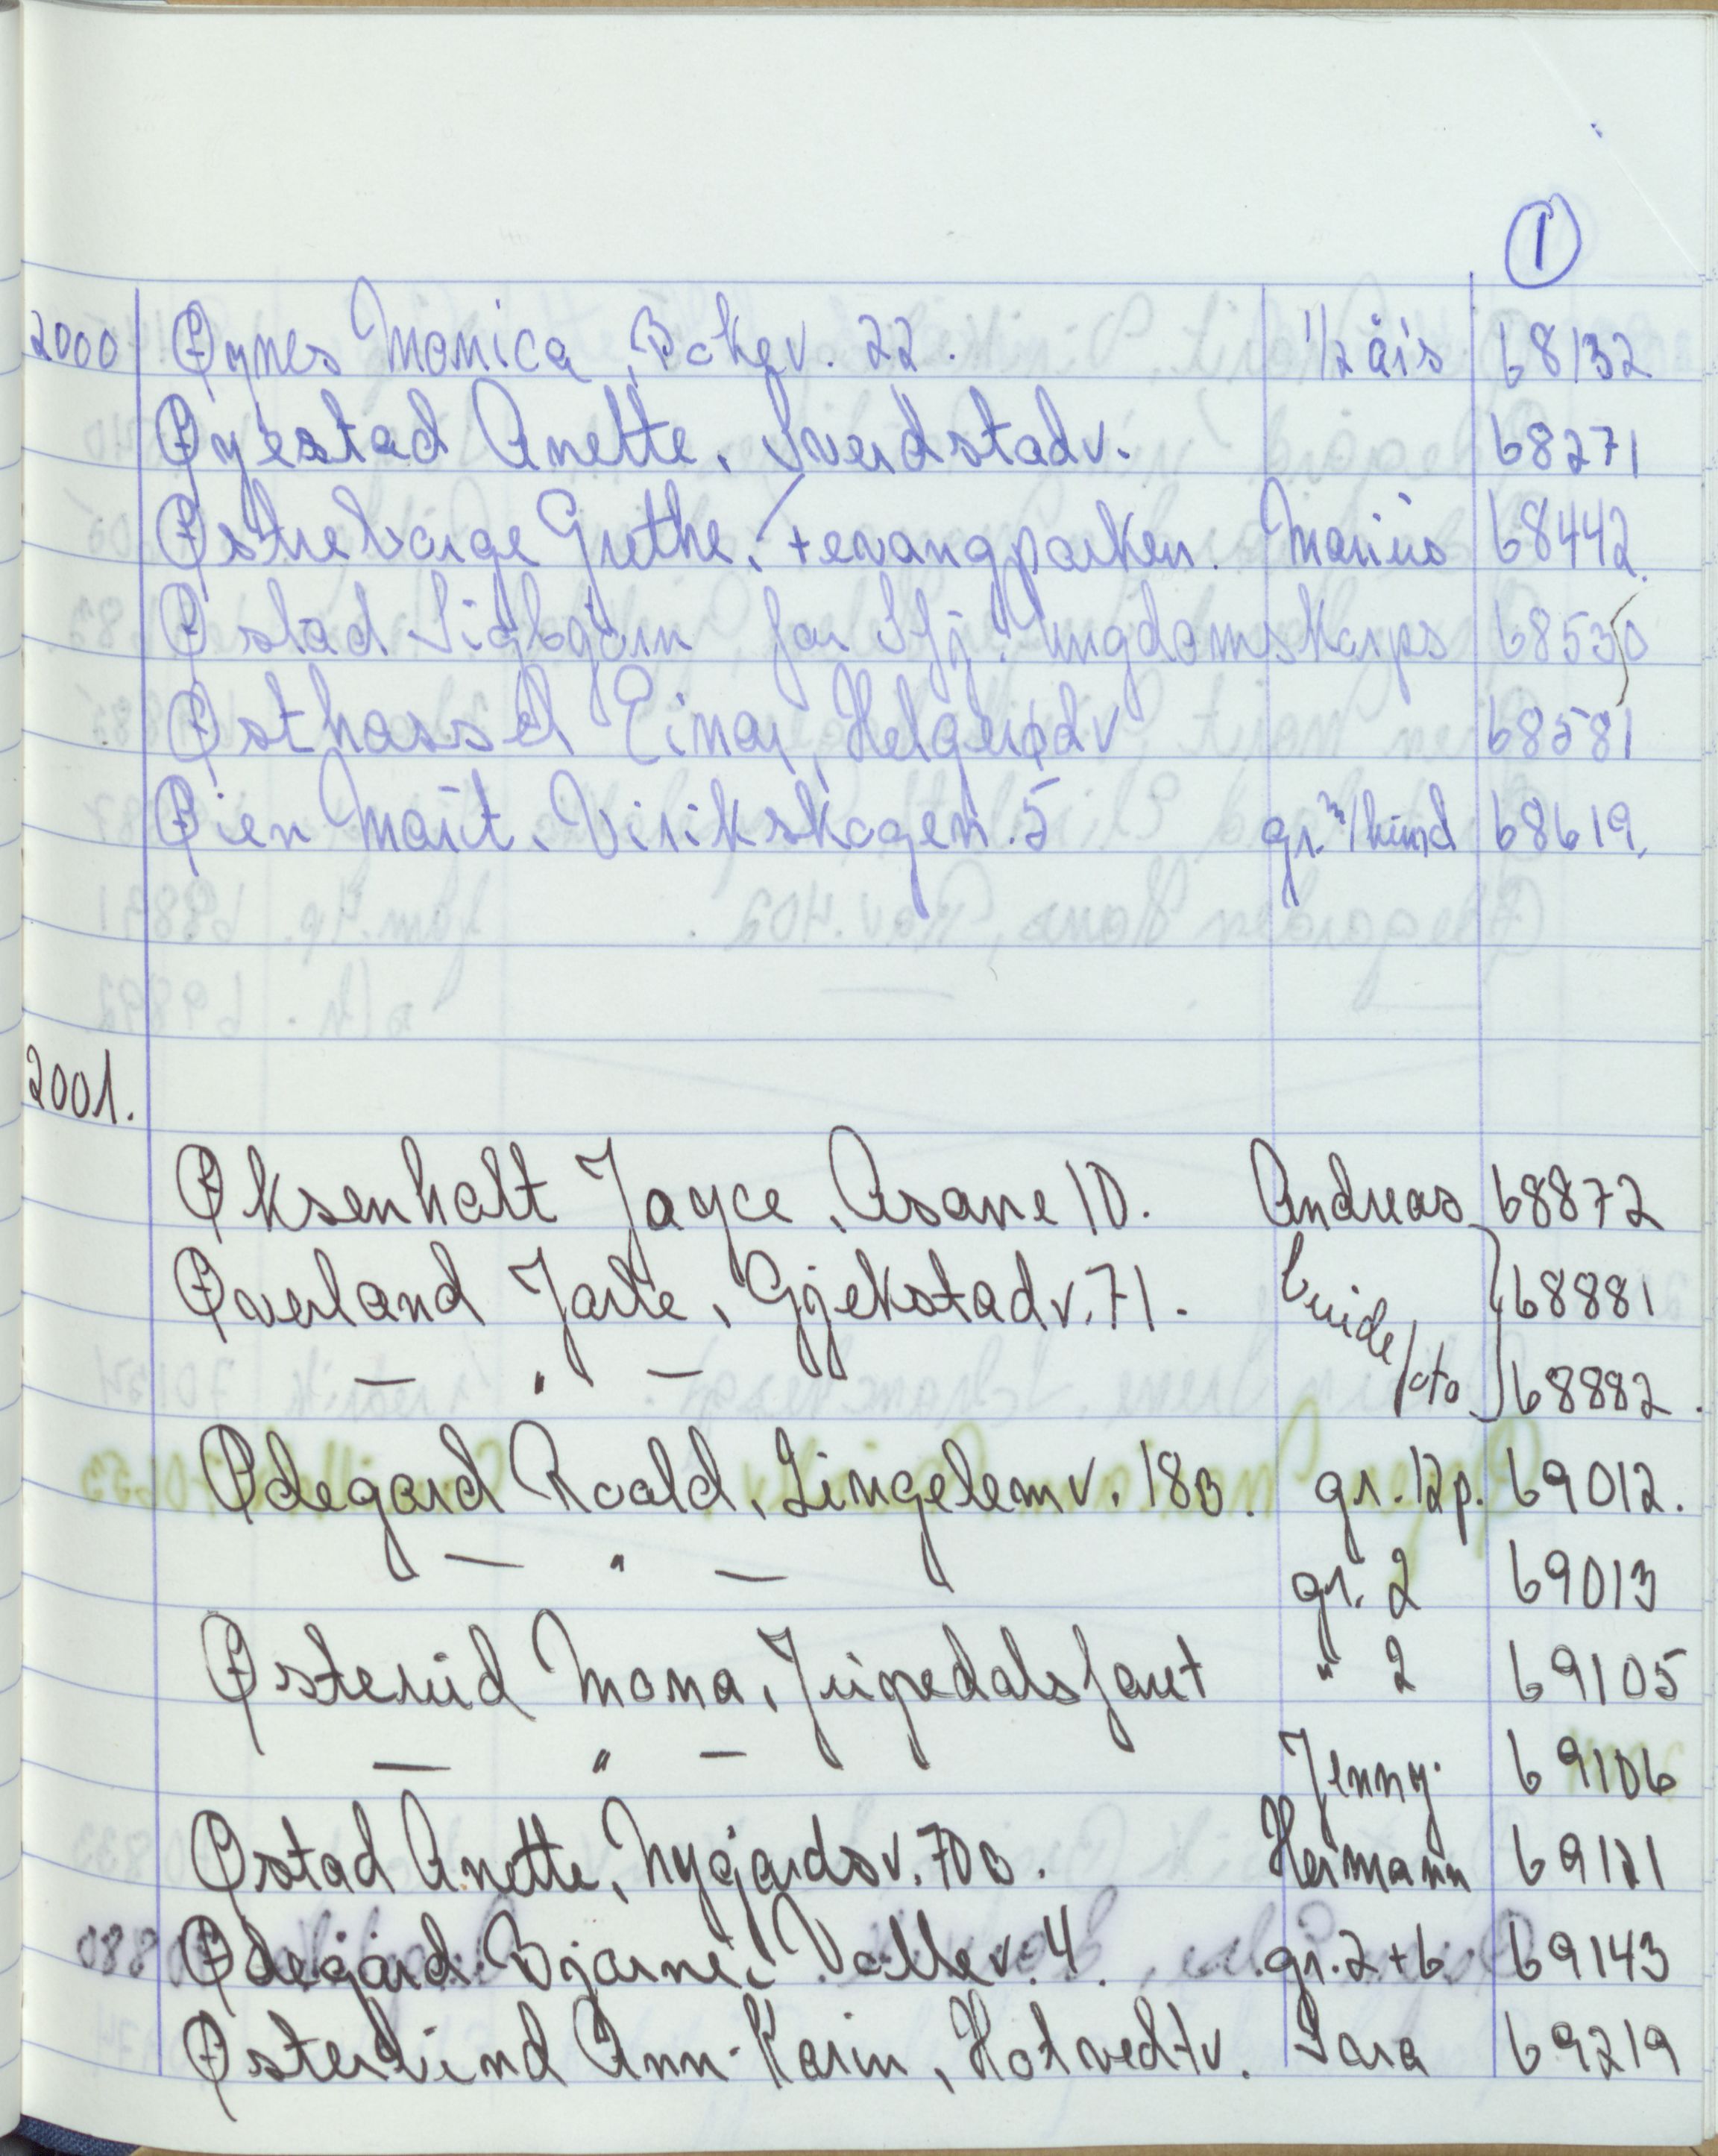 1
2000 Øynes Monica, Bakev. 22. 1/2 års 68132
Øyestad Anette, Sverdstadv. 68271
Østrebørge Grethe, Stenvangparken. Marius 68442.
Østad Sigbjørn for Sfj. Ungdomskorps 68530
Østhassel Einar, Helgerødv 68581
Øien Marit, Virikskogen. 5 gr. m/hund 68619.
2001.
Øksenholt Joyce, Åsane 10. Andreas 68872
Øverland Jarle, Gjekstadv. 71. brude/oto 68881
— " — 68882.
Ødegård Roald, Lingelemv. 183. gr. 12p. 69012.
— " — gr. 2 69013
Østerud Mona, Furpedalsfaret " 2 69105
— " — Jenny. 69106
Østad Anette, Nygårdsv. 70b. Hermann 69121
Ødegård Bjarne, Vallev. 4. gr. 2+6 69143
Østerlund Ann-Karin, Hotvedtv. Sara 69219